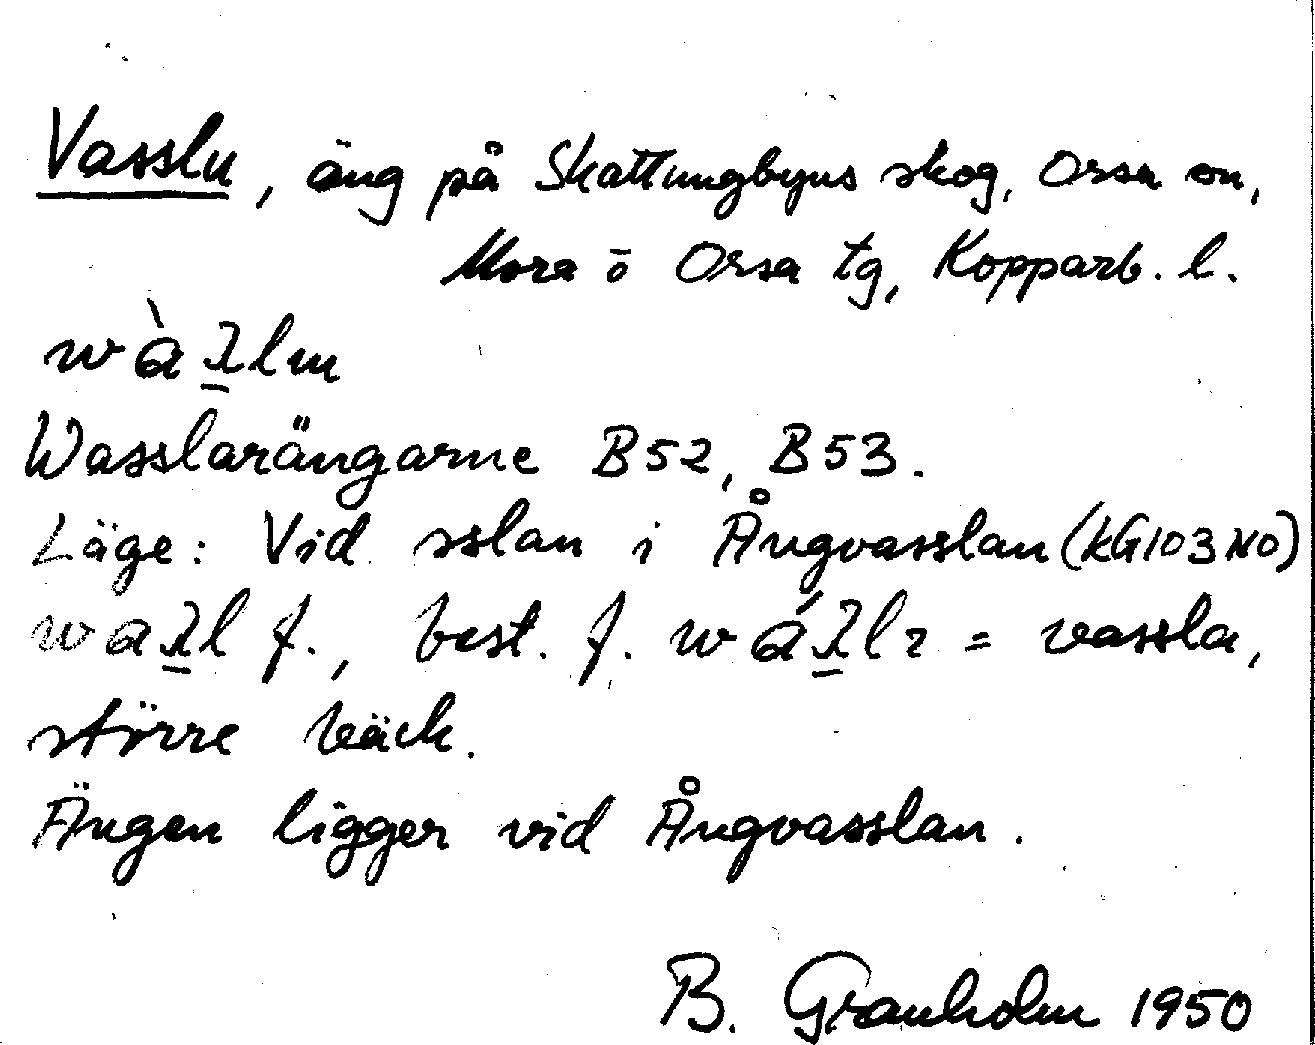 Vasslu, äng på Skattungbyns skog, Orsa sn,
Mora o Orsa tg, Kopparb. l.
Wasslarängarne B52, B53.
Läge: Vid sslan i Ångvasslan (KG103NO)
f., best. f. = vassla,
större bäck.
Ängen ligger vid Ångvasslan.
B. Granholm 1950